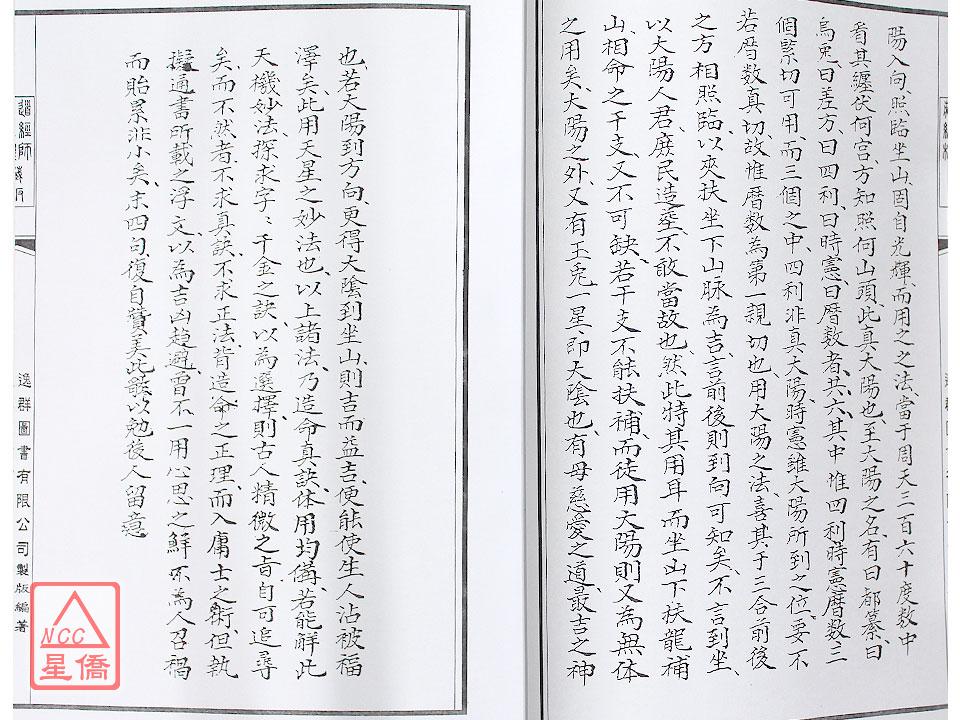 陽入向、照臨坐山、固自光輝、而用之之法、當于周天三百六十度数中
看其纏伏何宮、方知照何山頭、此真太陽也、至太陽之名、有曰都纂、曰
烏兎、曰差方、曰四利、曰時憲、曰暦数者、共六、其中惟四利時憲暦数三
個緊切可用、而三個之中、四利非真太陽、時憲雖太陽所到之位、要不
若暦数真切、故惟暦数為第一親切也、用太陽之法、喜其于三合前後
之方、相照臨、以夾扶坐下山脉為吉、言前後則到向可知矣、不言到坐、
以太陽人君、庶民造塟、不敢當故也、然此特其用耳、而坐山下扶龍補
山、相命之干支、又不可缺、若干支不能扶補、而徒用太陽、則又為無体
之用矣、太陽之外、又有玉兎一星、即太陰也、有母慈愛之道、最吉之神
也、若太陽到方向、更得太陰到坐山、則吉而益吉、便能使生人沾被福
澤矣、此用天星之妙法也、以上諸法、乃造命真訣、体用均備、若能解此
天機妙法、探求字〻千金之訣、以為選擇、則古人精微之旨、自可追尋
矣、而不然者、不求真訣、不求正法、背造命之正理、而入庸士之術、但執
擬通書所載之浮文、以為吉凶趋避、曾不一用心思之、鮮不為人召禍
而貽累非小矣、末四句、復自賛美此骸、以勉後人留意
逸群圖書有限公司製版編著
NCC
星僑